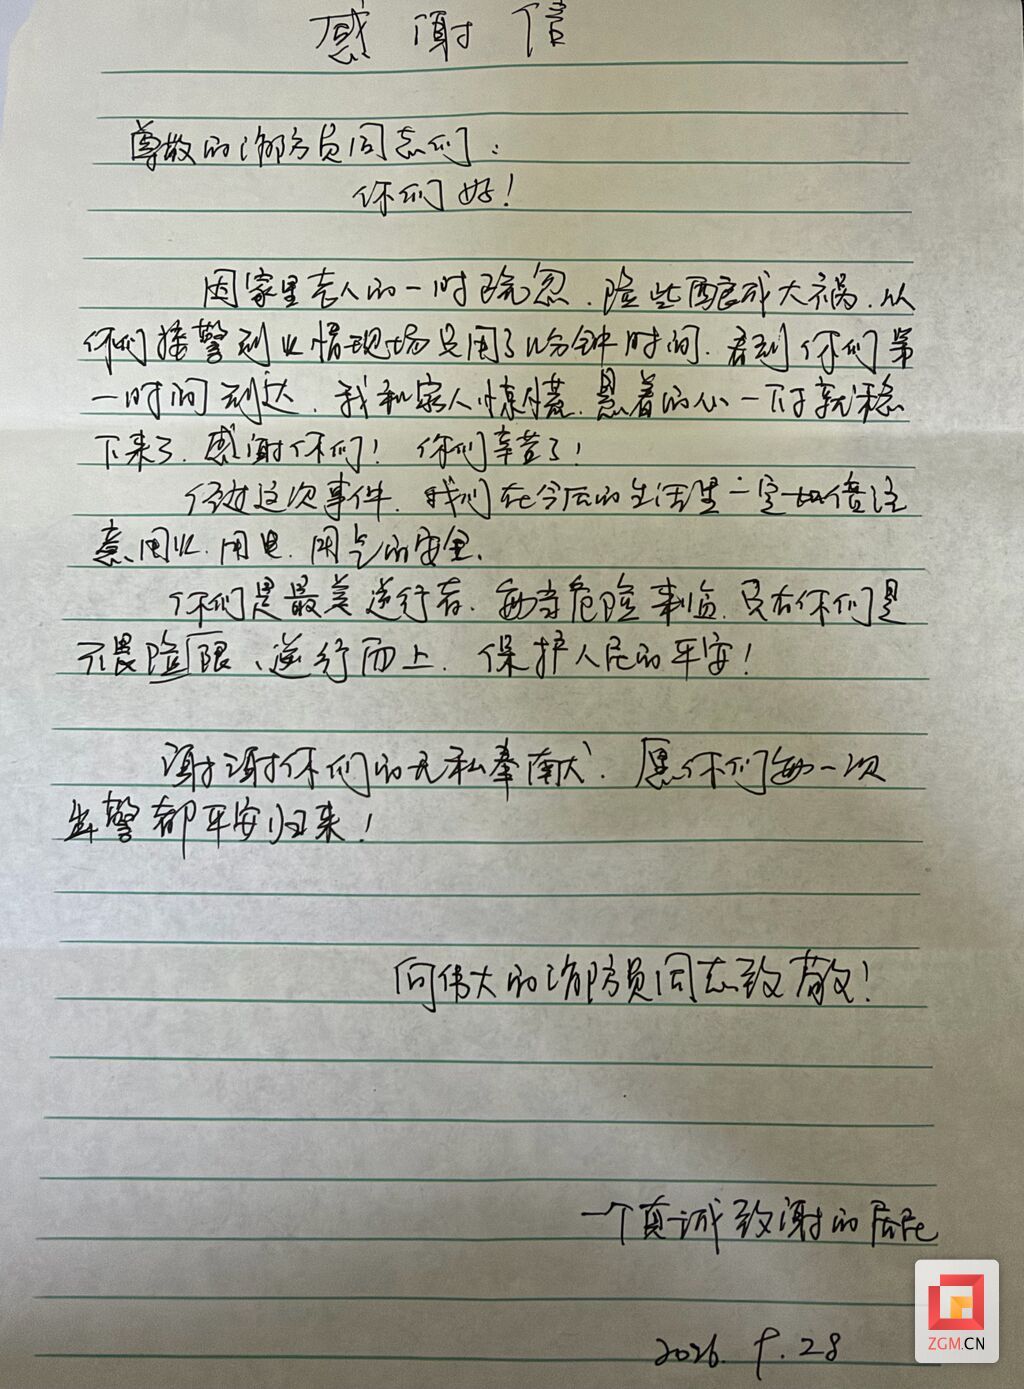 感谢信
尊敬的消防员同志们：
你们好！
因家里老人的一时疏忽、险些酿成大祸、从
你们接警到火情现场只用了几分钟时间、看到你们第
一时间到达、我和家人惊慌、悬着的心一下子就稳
下来了、感谢你们！你们辛苦了！
经过这次事件、我们在今后的生活里一定加倍注
意用火、用电、用气的安全、
你们是最美逆行者、每当危险来临、只有你们是
不畏险限、逆行而上、保护人民的平安！
谢谢你们的无私奉献、愿你们每一次
出警都平安归来！
向伟大的消防员同志致敬！
一个真诚致谢的居民
2026.9.28
ZGM.CN